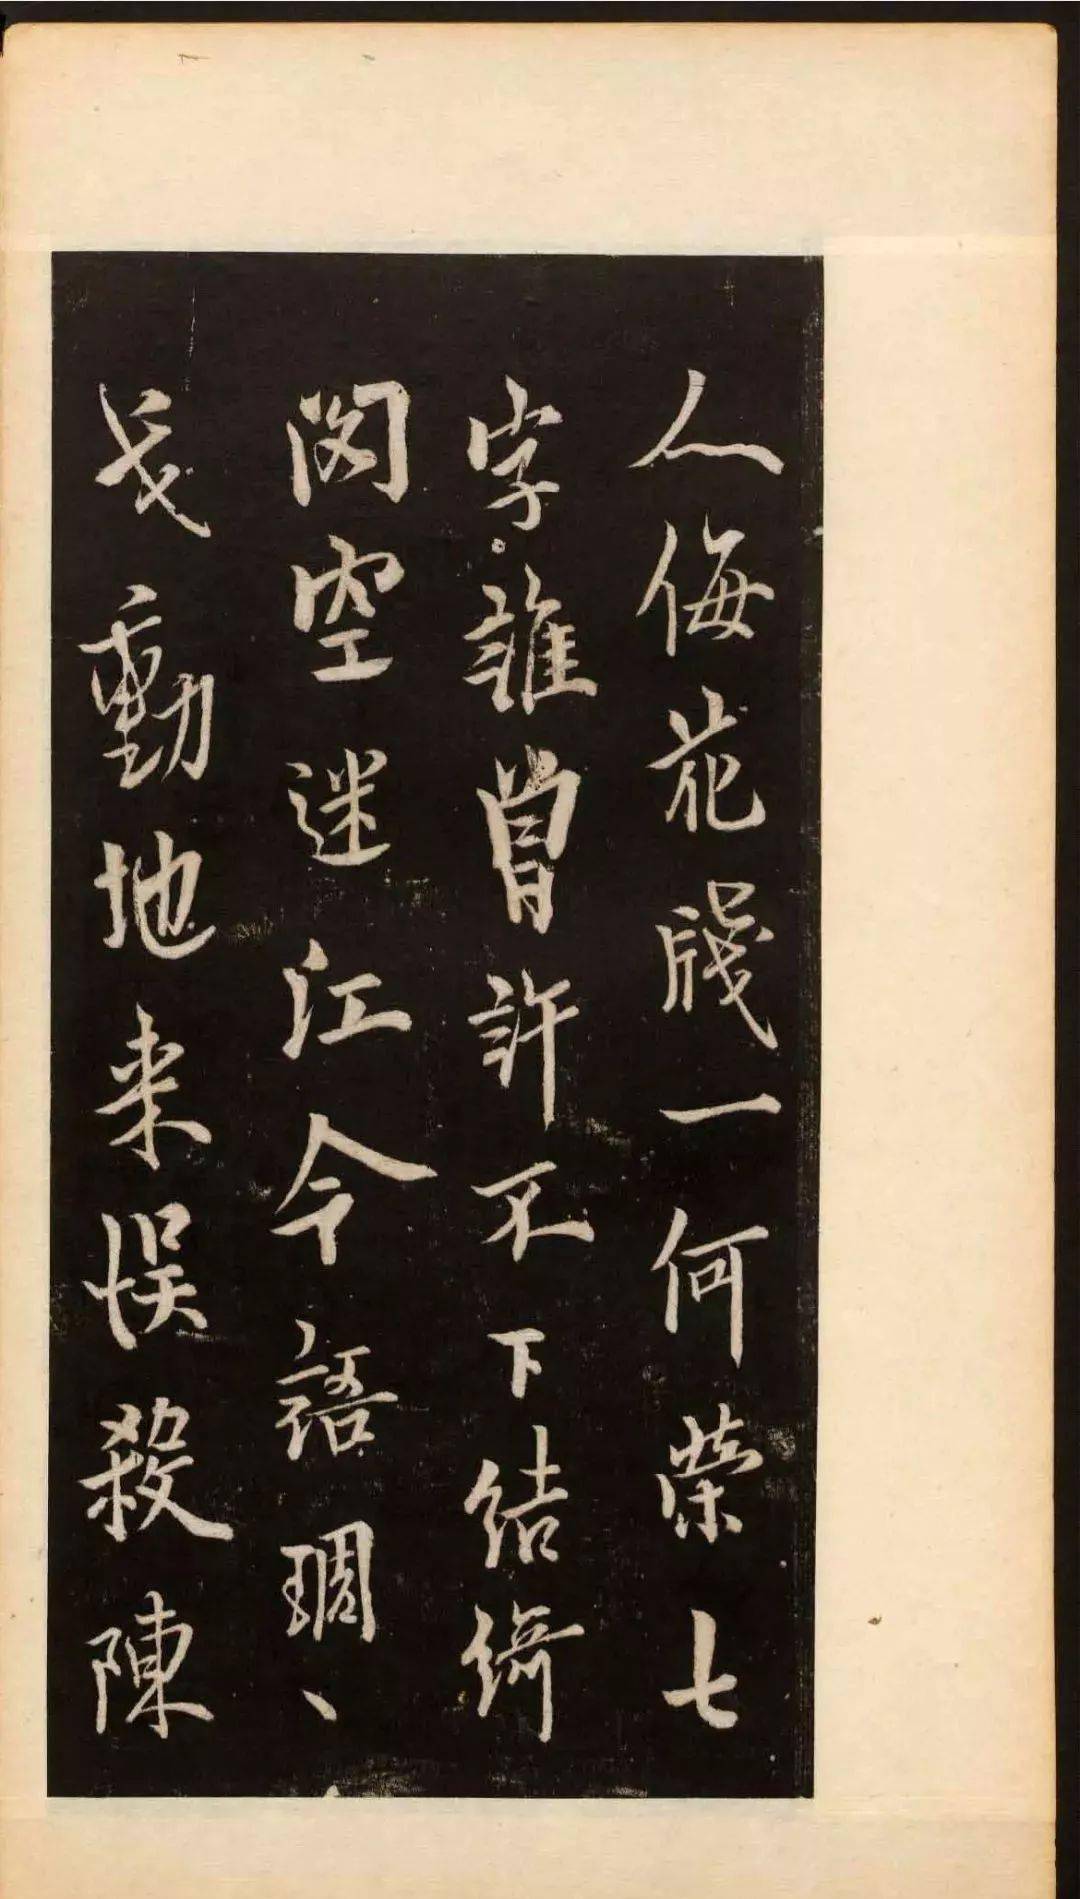 人侮花牋一何榮七
字誰曾許不下結綺
閣空迷江令語琱、
戈動地来悮殺陳